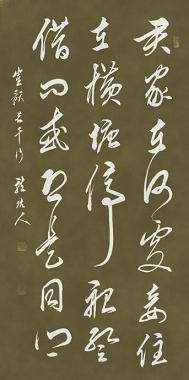 君家在何處妾住
在橫塘停船暫
借問或恐是同鄉
崔顥長干行